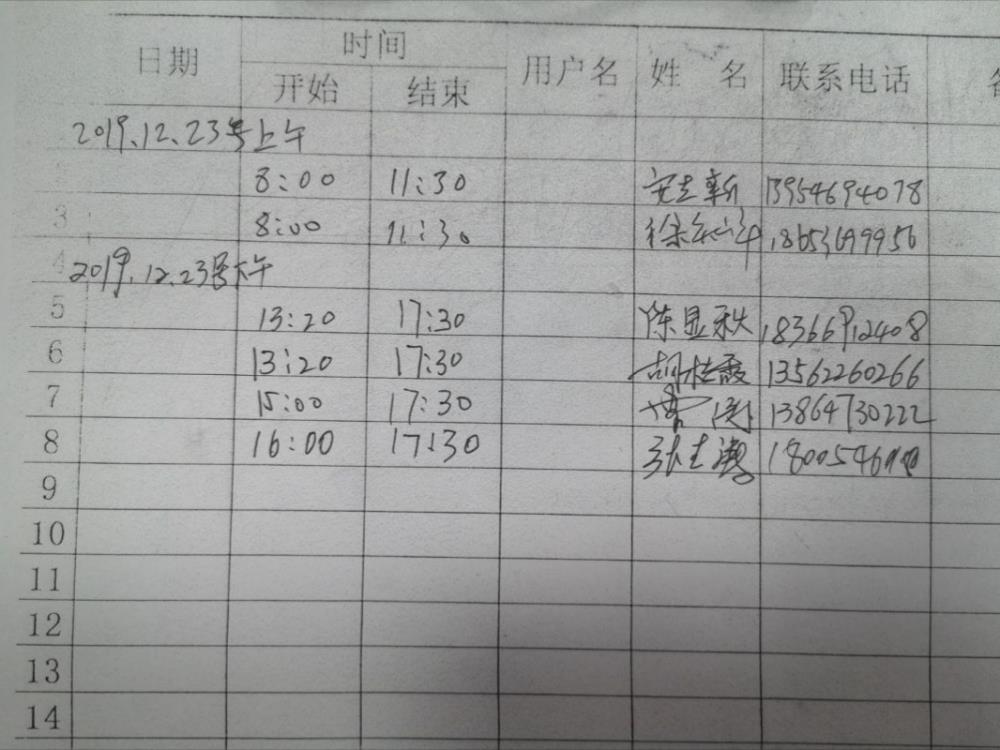 日期 时间 用户名 姓 名 联系电话
开始 结束
2019.12.23号上午
8:00 11:30 13954694078
3 8:00 11:30 徐 18653699956
4 2019.12.23号下午
5 13:20 17:30 陈显秋 18366912408
6 13:20 17:30 胡桂霞 13562260266
7 15:00 17:30 13864730222
8 16:00 17:30 张 1800546
9
10
11
12
13
14